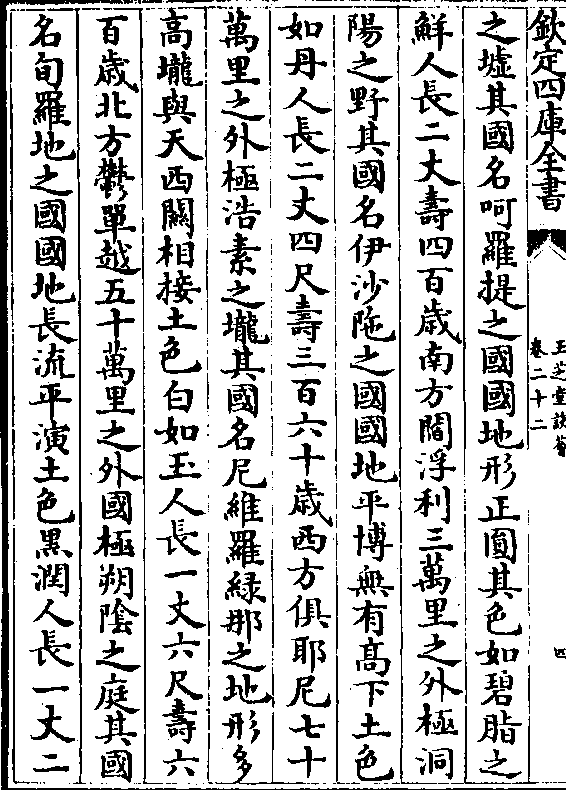 欽定四庫全書
玉芝堂談薈
卷二十二
四
之墟其國名呵羅提之國國地形正圓其色如碧脂之
鮮人長二丈壽四百歳南方閻浮利三萬里之外極洞
陽之野其國名伊沙陁之國國地平博無有髙下土色
如丹人長二丈四尺壽三百六十歳西方俱耶尼七十
萬里之外極浩素之壠其國名尼維羅緑那之地形多
高壠與天西關相接土色白如玉人長一丈六尺壽六
百歳北方鬱單越五十萬里之外國極朔陰之庭其國
名旬羅地之國國地長流平演土色黒潤人長一丈二